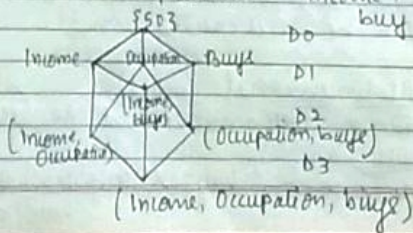 buy
{50}
D0
Income
Occupation
Buys
D1
(Income,
buys)
D2
(Income,
Occupation)
(Occupation, buys)
D3
(Income, Occupation, buys)